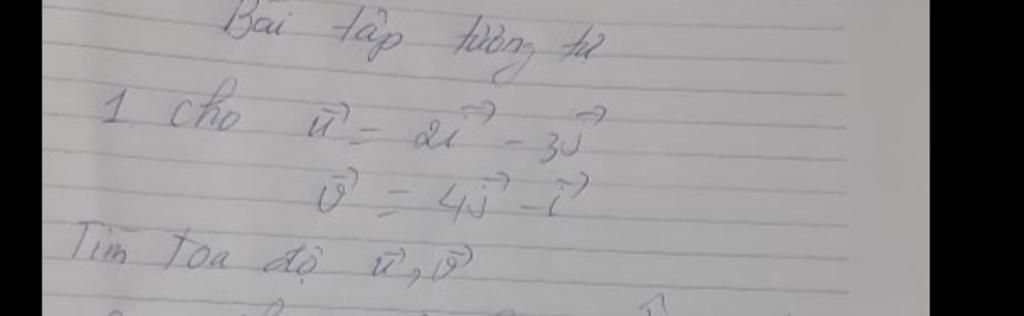 Bài tập tương tự
1 cho u⃗ = 2i⃗ - 3j⃗
v⃗ = 4j⃗ - i⃗
Tìm tọa độ u⃗, v⃗